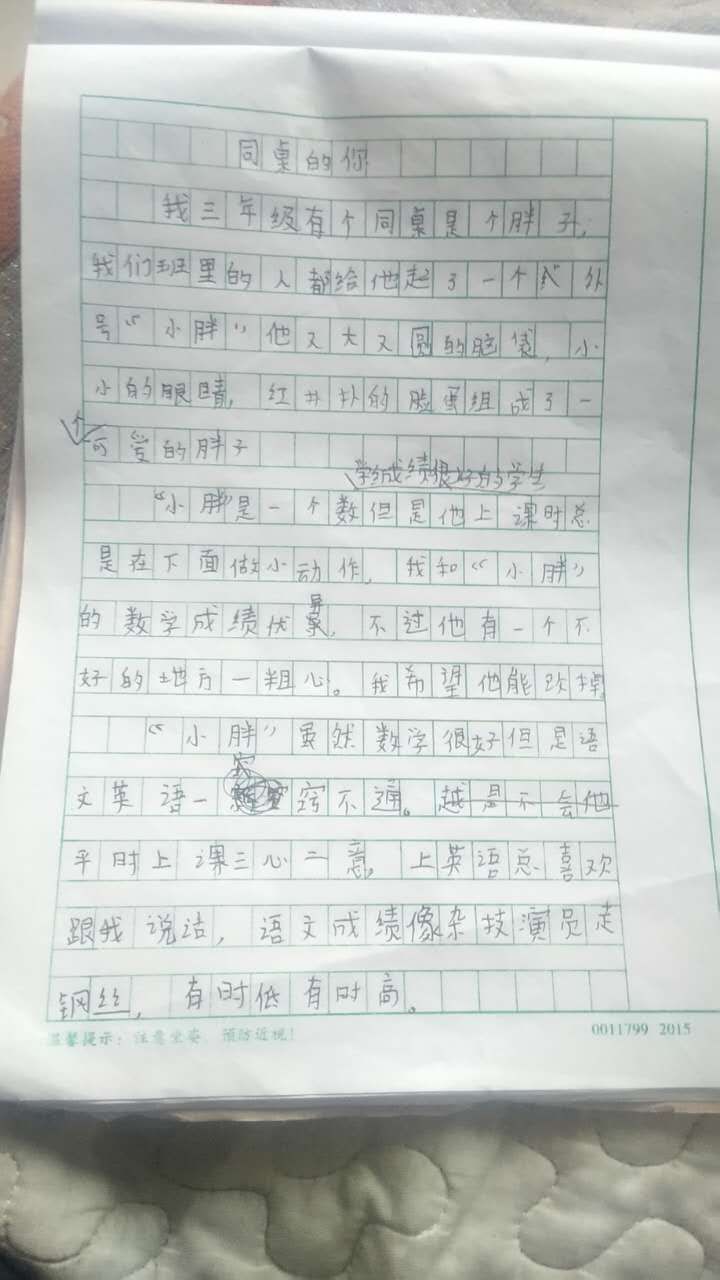 同桌的你
我三年级有个同桌是个胖子,
我们班里的人都给他起了一个外
号“小胖”他又大又圆的脑袋,小
小的眼睛,红扑扑的脸蛋组成了一
个
可爱的胖子
学成绩很好的学生
“小胖”是一个数但是他上课时总
是在下面做小动作,我和“小胖”
的数学成绩优异,不过他有一个不
好的地方一粗心。我希望他能改掉。
“小胖”虽然数学很好但是语
文英语一窍不通。越是不会他
平时上课三心二意,上英语总喜欢
跟我说话,语文成绩像杂技演员走
钢丝,有时低有时高。
温馨提示:注意坐姿,预防近视!
0011799 2015